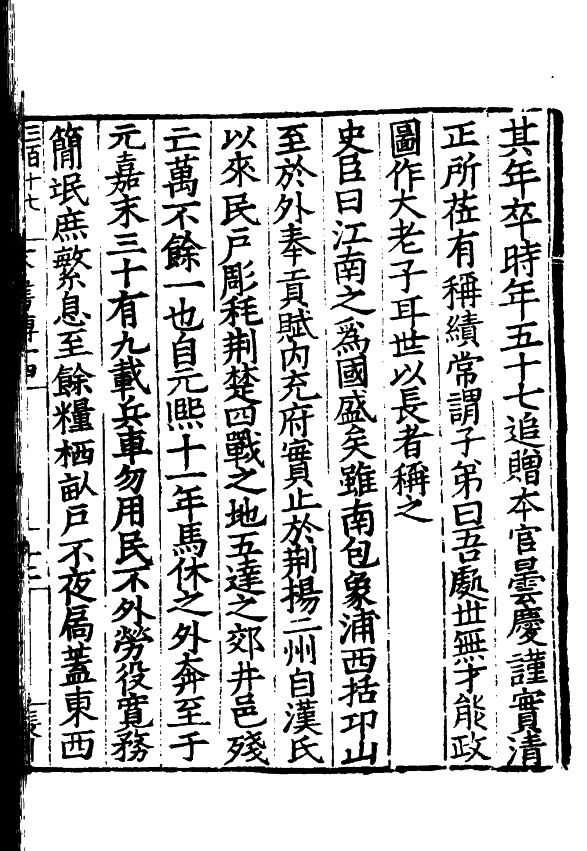 其年卒時年五十七追贈本官曇慶謹實清
正所莅有稱績常謂子弟曰吾處世無才能政
圖作大老子耳世以長者稱之
史臣曰江南之爲國盛矣雖南包象浦西括卭山
至於外奉貢賦内充府實止於荆揚二州自漢氏
以來民戶彫耗荆楚四戰之地五達之郊井邑殘
亡萬不餘一也自元熙十一年馬休之外奔至于
元嘉末三十有九載兵車勿用民不外勞役寛務
簡氓庶繁息至餘糧栖畝戶不夜扃蓋東西
三百十七